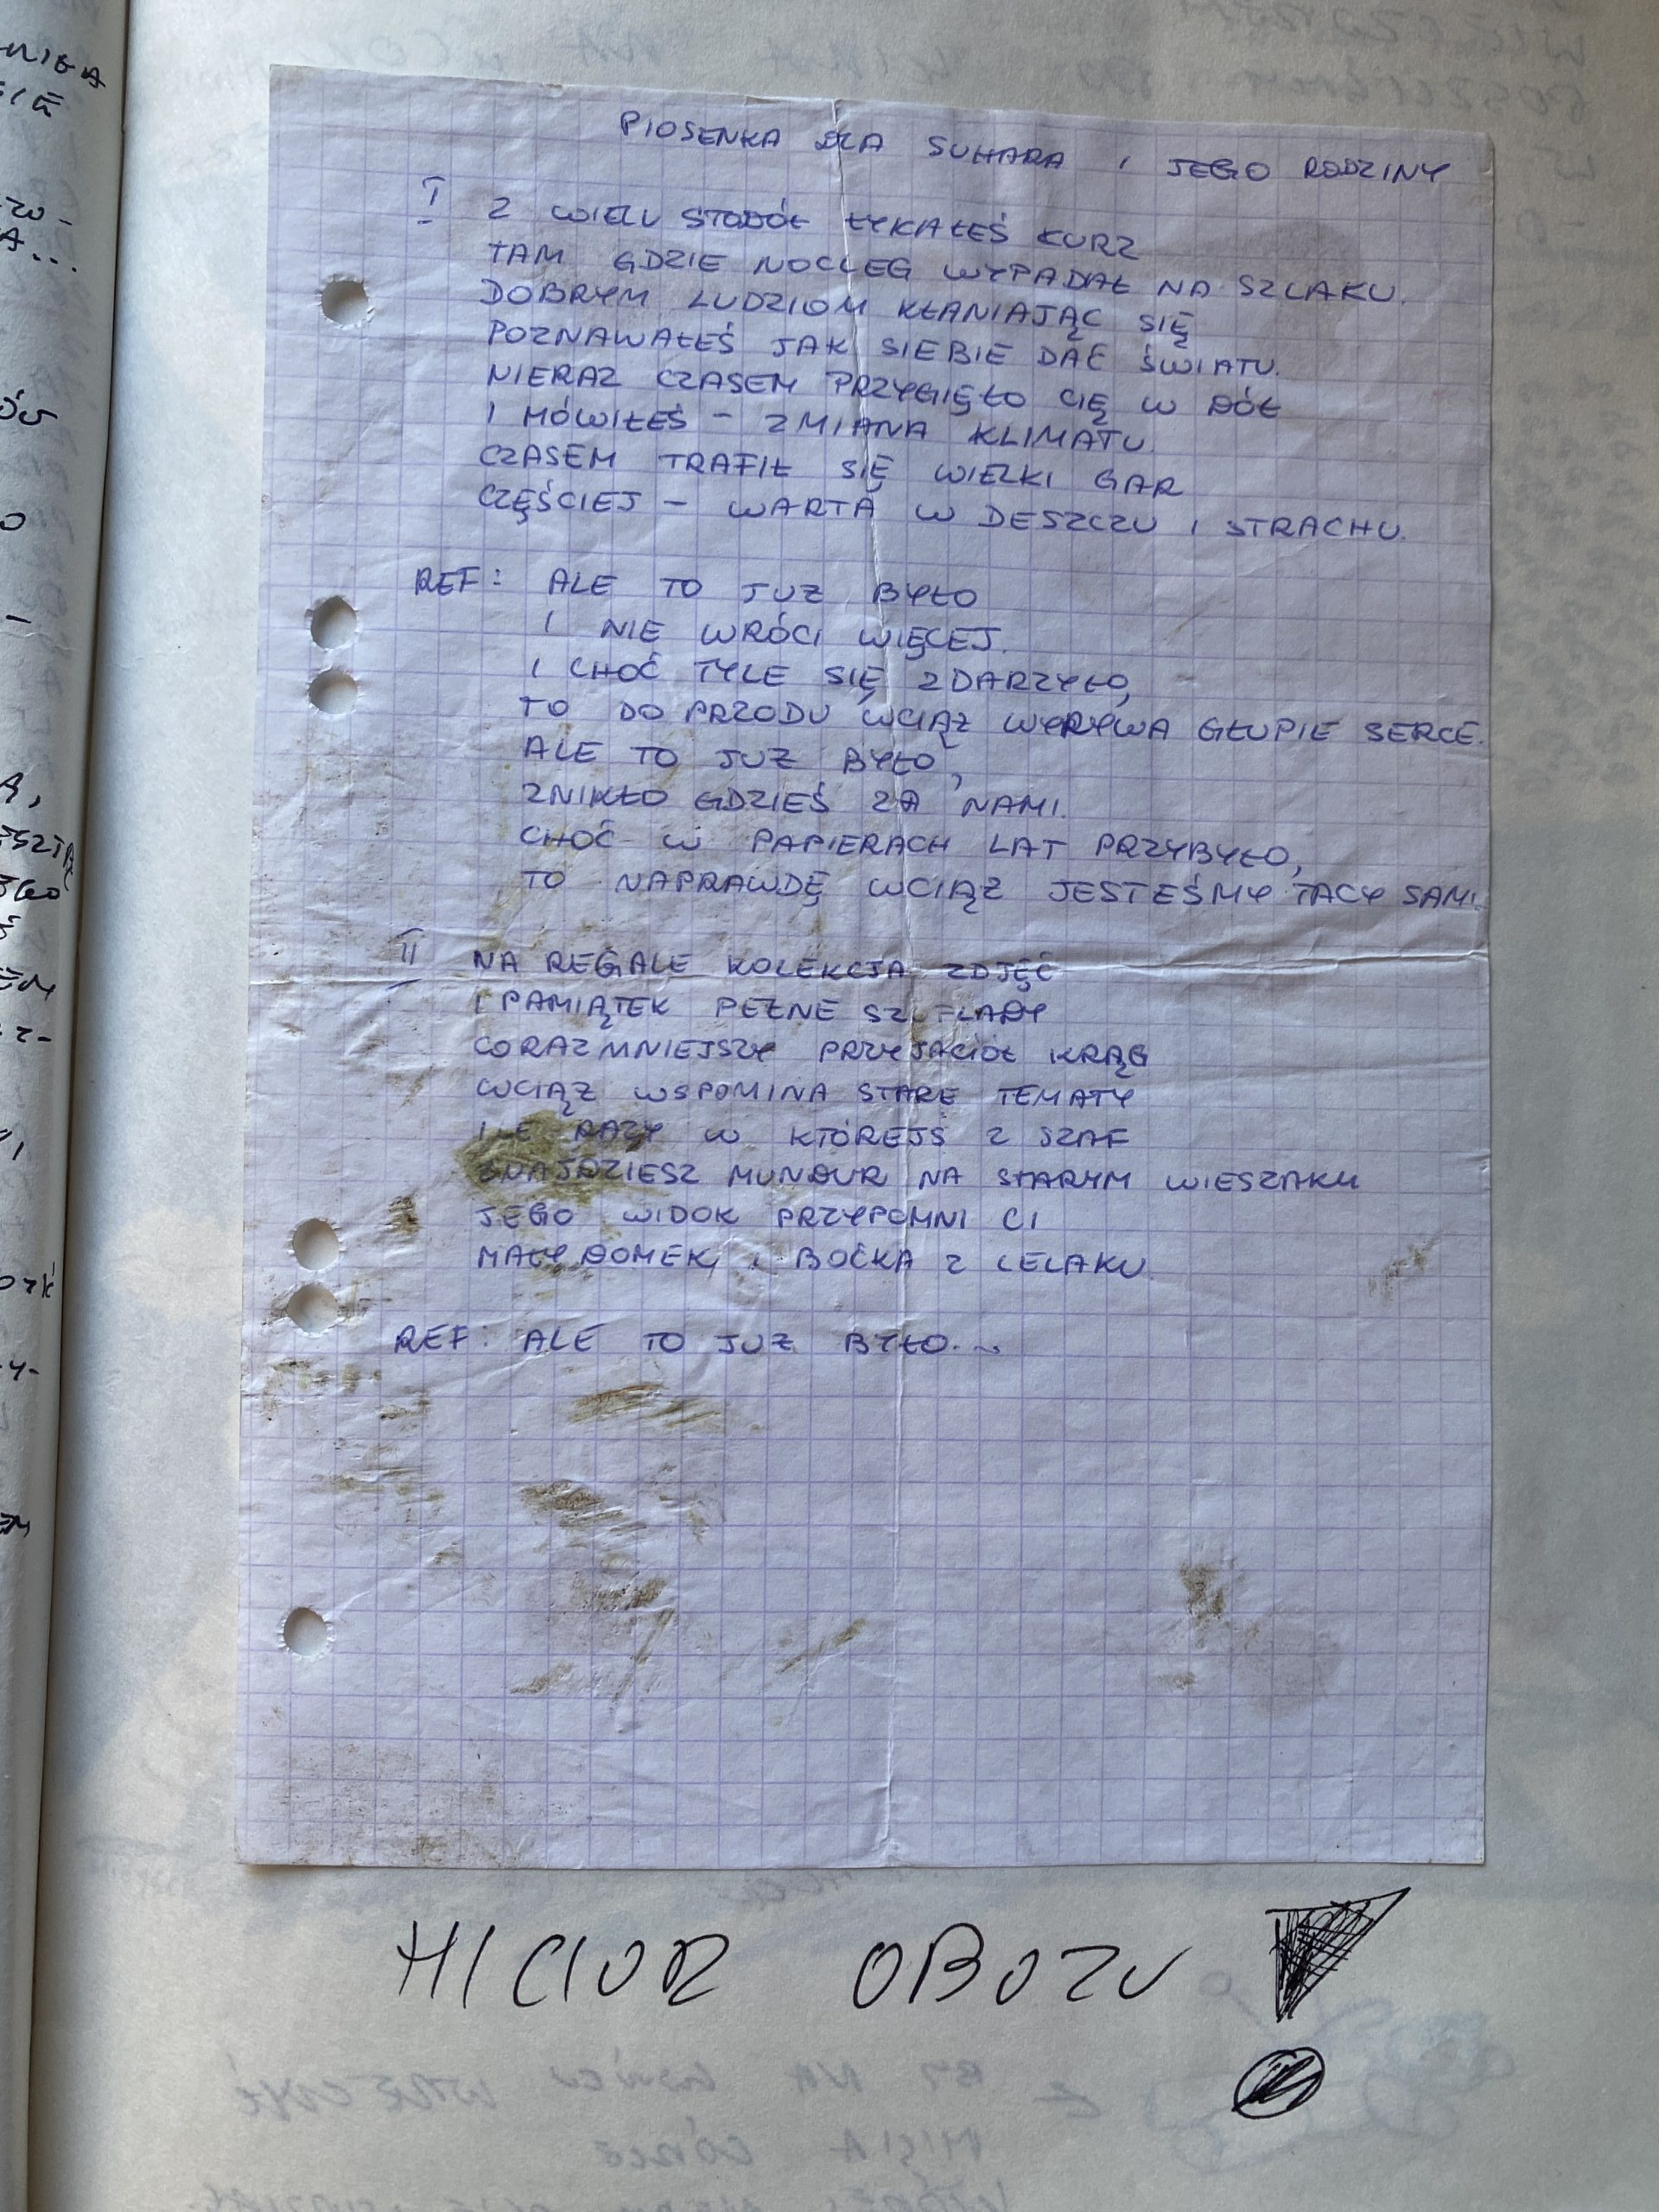 PIOSENKA DLA SUHARA I JEGO RODZINY
I Z WIELU STODÓŁ ŁYKAŁEŚ KURZ
TAM GDZIE NOCLEG WYPADAŁ NA SZLAKU.
DOBRYM LUDZIOM KŁANIAJĄC SIĘ
POZNAWAŁEŚ JAK SIEBIE DAĆ ŚWIATU.
NIERAZ CZASEM PRZYGIĘŁO CIĘ W DÓŁ
I MÓWIŁEŚ - ZMIANA KLIMATU.
CZASEM TRAFIŁ SIĘ WIELKI GAR
CZĘŚCIEJ - WARTA W DESZCZU I STRACHU.
REF: ALE TO JUŻ BYŁO
I NIE WRÓCI WIĘCEJ.
I CHOĆ TYLE SIĘ ZDARZYŁO,
TO DO PRZODU WCIĄŻ WYRYWA GŁUPIE SERCE.
ALE TO JUŻ BYŁO,
ZNIKŁO GDZIEŚ ZA NAMI.
CHOĆ W PAPIERACH LAT PRZYBYŁO,
TO NAPRAWDĘ WCIĄŻ JESTEŚMY TACY SAMI.
II NA REGALE KOLEKCJA ZDJĘĆ
I PAMIĄTEK PEŁNE SZUFLADY
CORAZ MNIEJSZY PRZYJACIÓŁ KRĄG
WCIĄŻ WSPOMINA STARE TEMATY
ILE RAZY W KTÓREJŚ Z SZAF
ZNAJDZIESZ MUNDUR NA STARYM WIESZAKU
JEGO WIDOK PRZYPOMNI CI
MAŁY DOMEK, I BOĆKA Z LELAKU
REF: ALE TO JUŻ BYŁO...
HICIOR OBOZU!